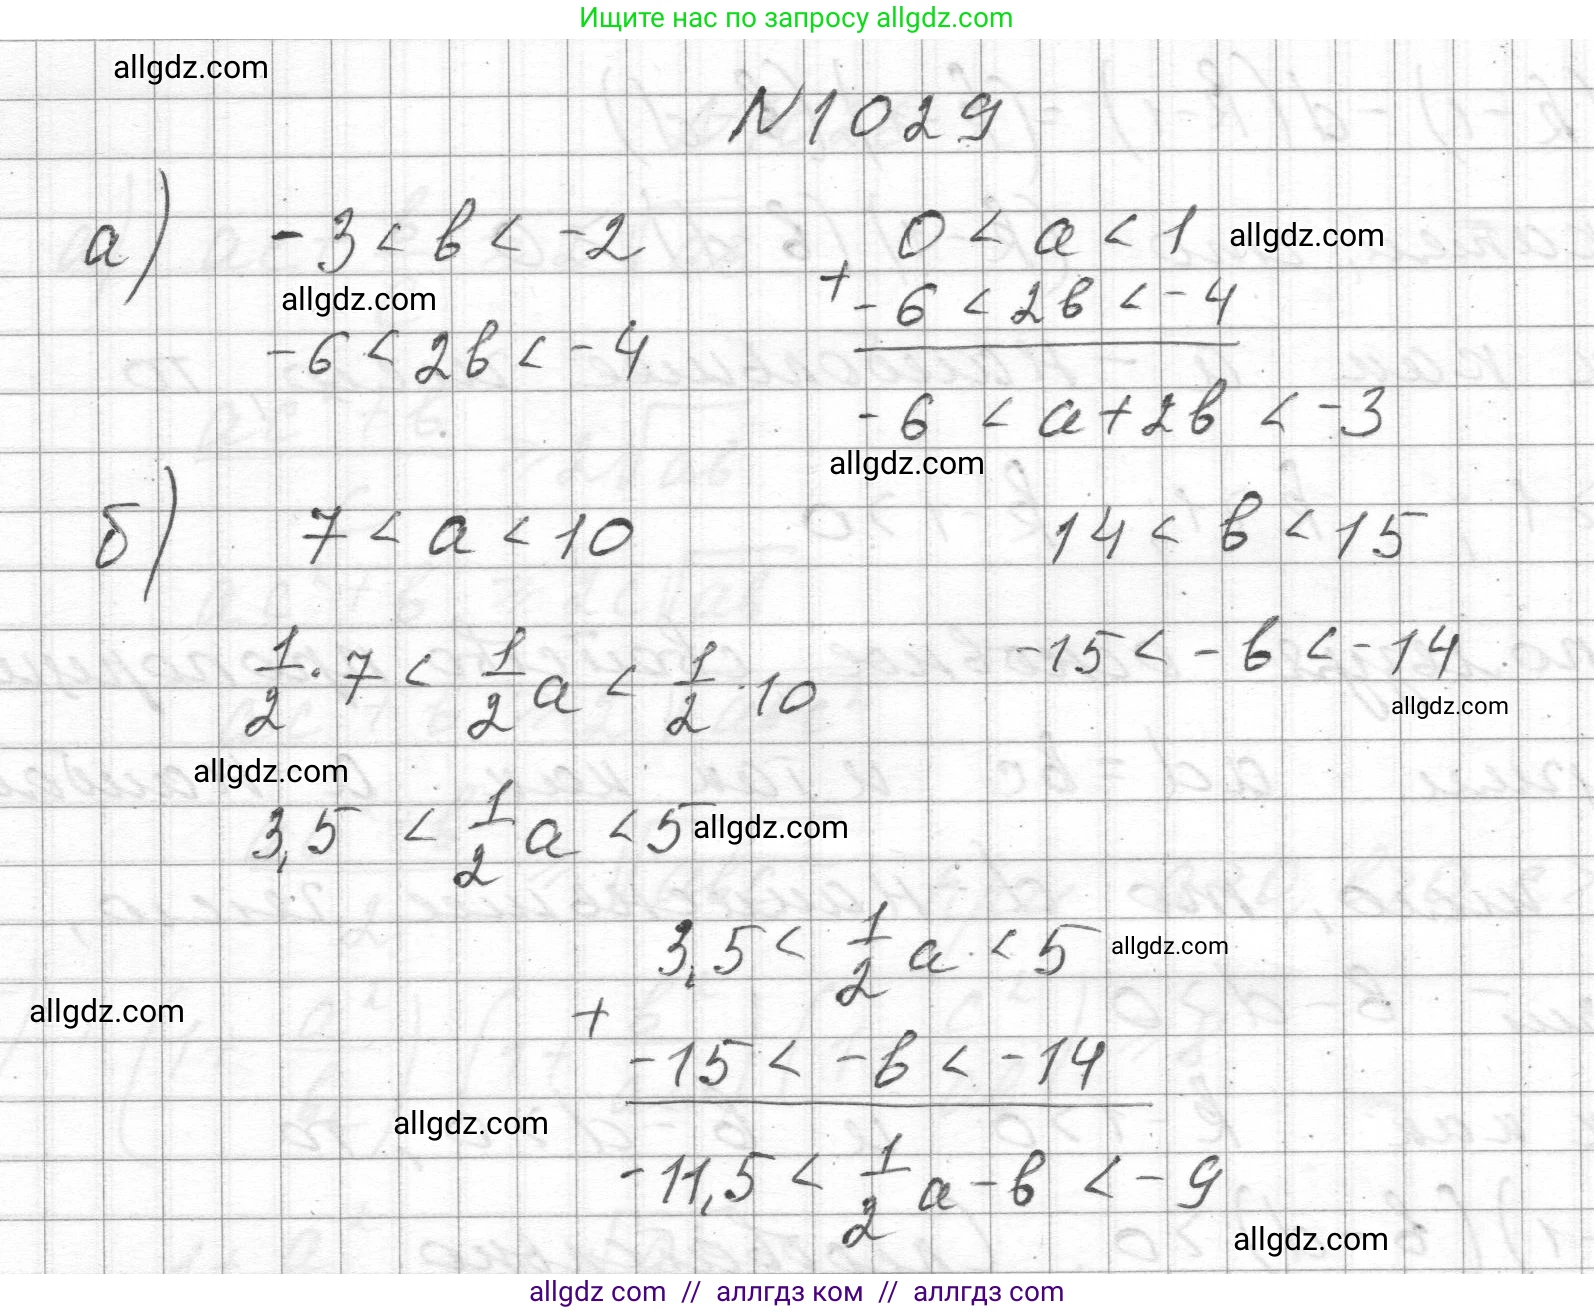 Ищите нас по запросу allgdz.com
allgdz.com
N1029
а) -3 < в < -2 0 < а < 1 allgdz.com
allgdz.com + -6 < 2в < -4
-6 < 2в < -4
-6 < а+2в < -3
allgdz.com
б) 7 < а < 10 14 < в < 15
1/2 · 7 < 1/2 а < 1/2 · 10 -15 < -в < -14
allgdz.com
allgdz.com
3,5 < 1/2 а < 5 allgdz.com
3,5 < 1/2 а < 5 allgdz.com
allgdz.com +
-15 < -в < -14
allgdz.com
-11,5 < 1/2 а - в < -9
allgdz.com
allgdz.com // аллгдз ком // аллгдз com